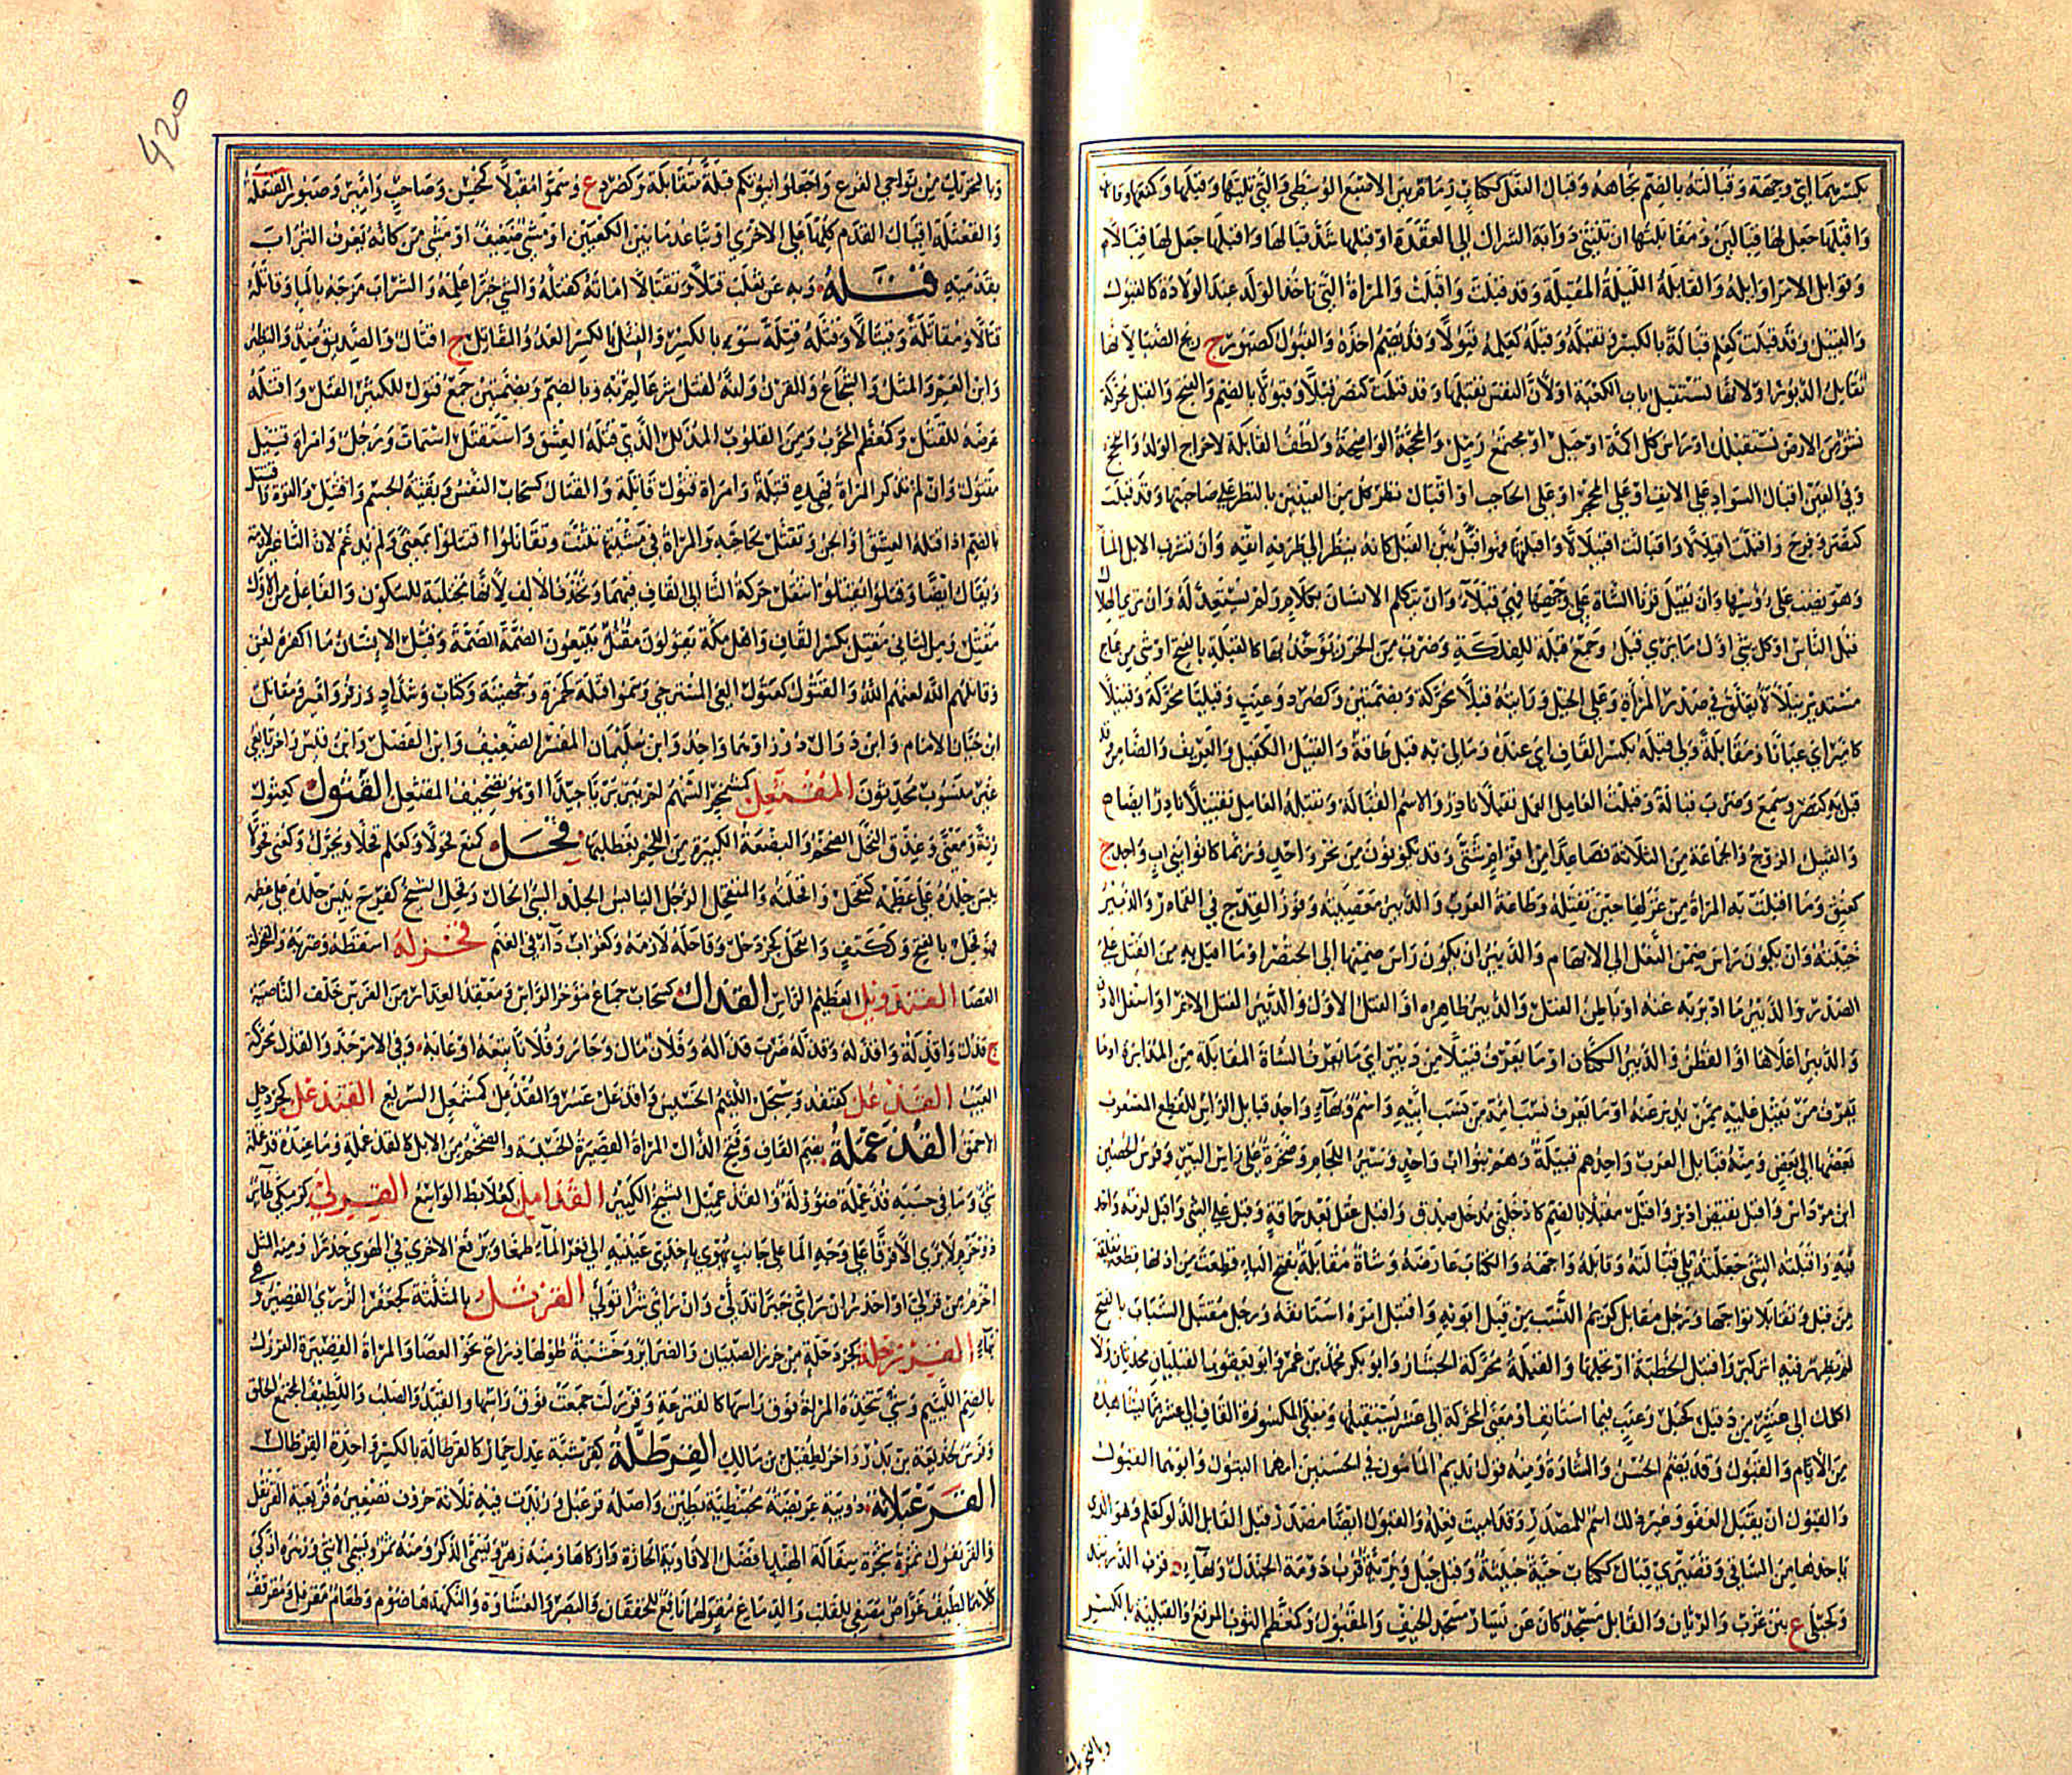 بكسرهما اي وجهة وقبالته بالضم تجاهه وقبال النعل ككتاب زمام بين الاصبع الوسطى والتي تليها وقبلها وكمنعها وقابلها
واقبلها جعل لها قبالين ومقابلتها ان تثني ذوابة الشراك الى العقدة او قبلها شد قبالها واقبلها جعل لها قبالا
وقوابل الامر اوايله والقابلة الليلة المقبلة وقد قبلت واقبلت والمراة التي تاخذ الولد عند الولادة كالقبول
والقبيل وقد قبلت كعلم قبالة بالكسر وتقبله وقبله كعلمه قبولا وقد يضم اخذه والقبول كصبور ج ريح الصبا لانها
تقابل الدبور او لانها تستقبل باب الكعبة او لان النفس تقبلها وقد قبلت كنصر قبلا وقبولا بالضم والفتح والقبل محركة
نشز من الارض يستقبلك او راس كل اكمة او جبل او مجتمع رمل والمحجة الواضحة ولطف القابلة لاخراج الولد والفحج
وفي العين اقبال السواد على الانف او على المحجر او على الحاجب او اقبال نظر كل من العينين على صاحبتها وقد قبلت
كنصر وفرح واقبلت اقبلالا واقبالت اقبيلالا واقبلتها فهو اقبل بين القبل كانه ينظر الى طرف انفه وان تشرب الابل الماء
وهو يصب على رؤسها وان يقبل قرنا الشاة على وجهها فهي قبلاء وان يتكلم الانسان بكلام ولم يستعد له وان يرى الهلال
قبل الناس او كل شئ اول ما يرى قبل وجمع قبلة للفلكة وضرب من الخرز يؤخذ بها كالقبلة بالفتح او شئ من عاج
مستدير يتلالا يعلق في صدر المراة وعلى الخيل ورايته قبلا محركة وبضمتين وكصرد وعنب وقبليا محركة وقبيلا
كامير اي عيانا ومقابلة ولي قبله بكسر القاف اي عنده وما لي به قبل طاقة والقبيل الكفيل والعريف والضامن وقد
قبل به كنصر وسمع وضرب قبالة وقبلت العامل العمل تقبلا نادر والاسم القبالة وتقبله العامل تقبيلا نادر ايضا م
والقبيل الزوج والجماعة من الثلاثة فصاعدا من اقوام شتى وقد يكونون من نجر واحد وربما كانوا بني اب واحد ج
كعنق وما اقبلت به المراة من غزلها حين تفتله وطاعة الرب والدبير معصيته وفوز القدح في القمار والدبير
خيبته وان يكون راس ضمن النعل الى الابهام والدبير ان يكون راس ضمنها الى الخنصر او ما اقبل به من الفتل على
الصدر والدبير ما ادبر به عنه او باطن الفتل والدبير ظاهره او الفتل الاول والدبير الفتل الاخر او اسفل الاذن
والدبير اعلاها او القطن والدبير الكتان او ما يعرف قبيلا من دبير اي ما يعرف الشاة المقابلة من المدابرة او ما
يعرف من يقبل عليه ممن يدبر عنه او ما يعرف نسب امه من نسب ابيه واسم وبهاء واحد قبايل الراس للقطع المشعوب
بعضها الى بعض ومنه قبايل العرب واحدهم قبيلة وهم بنو اب واحد وسير اللجام وصخرة على راس البير وفرس الحصين
ابن مرداس واقبل نقيض ادبر واقبل مقبلا بالضم كادخلني مدخل صدق واقبل عقل بعد حماقة وقبل على الشئ واقبل لزمه واخذ
فيه واقبلته الشئ جعلته يلي قبالته وقابله واجهه والكتاب عارضه وشاة مقابلة بفتح الباء قطعت من اذنها قطعة معلقة
من قبل وتقابلا تواجها ورجل مقابل كريم النسب من قبل ابويه واقتبل امره استانفه ورجل مقتبل الشباب بالفتح
لم يظهر فيه اثر كبر واقتبل الخطبة ارتجلها والقبلة محركة الجشار وابو بكر محمد بن عمر وابو يعقوب القبليان محدثان ولا
اكلمك الى عشر من ذي قبل كجبل وعنب فيما استانف او معنى المحركة الى عشر تستقبلها ومعنى المكسورة القاف الى عشر مما تشاهده
من الايام والقبول وقد يضم الحسن والشارة ومنه قول نديم المامون في الحسنين امهما البتول وابوهما القبول
والقبول ان يقبل العفو وغير ذلك اسم للمصدر وقد اميت فعله والقبول ايضا مصدر قبل القابل الدلو كعلم وهو الذي
ياخذها من الساقي وقصيري قبال ككتاب حية خبيثة وقبل جبل وبرية قرب دومة الجندل وبهاء د قرب الدربند
وكحبلى ع بين عرب والريان والقابل مسجد كان عن يسار مسجد الخيف والمقبول وكمعظم الثوب المرقع والقبلية بالكسر
وبالتحريك
420
وبالتحريك من نواحي الفرع واجعلوا بيوتكم قبلة متقابلة وكصرد ع وسموا مقبلا كمحسن وصاحب وامير وصبور القبعلة
والقعثلة اقبال القدم كلها على الاخرى او تباعد ما بين الكعبين او مشي ضعيف او مشي من كانه يغرف التراب
بقدميه قتله وبه عن ثعلب قتلا وتقتالا اماته كقتله والشئ خبرا علمه والشراب مزجه بالماء وقاتله
قتالا ومقاتلة وقيتالا وقتله قتلة سوء بالكسر والقتل بالكسر العدو والمقاتل ج اقتال والصديق ضد والنظير
وابن العم والمثل والشجاع والقرن وانه لقتل شر عالم به وبالضم وبضمتين جمع قتول للكثير القتل واقتله
عرضه للقتل وكمعظم المجرب ومن القلوب المذلل الذي قتله العشق واستقتل استمات ورجل وامراة قتيل
مقتول وان لم تذكر المراة فهذه قتيلة وامراة قتول قاتلة والقتال كسحاب النفس وبقية الجسم واقتتل والقوة وقتتل
بالضم اذا قتله العشق او الجن وتقتل بحاجته والمراة في مشيتها تثنت وتقاتلوا واقتتلوا بمعنى ولم يدغم لان التاء غير لازمة
ويقال ايضا وقتلوا يقتلوا تنقل حركة التاء الى القاف فيهما وتحذف الالف لانها مجتلبة للسكون والفاعل من الاول
مقتل ومن الثاني مقتل بكسر القاف واهل مكة يقولون مقتل يتبعون الضمة الضمة وقتل الانسان ما اكفره لعن
وقاتلهم الله لعنهم الله والقتول كقول العي المسترخي وسموا قتلة كحمزة وجهينة وكتاب وشداد وزفر وامير ومقاتل
ابن حيان الامام وابن دوال دوز او هما واحد وابن سليمان المفسر الضعيف وابن الفضل وابن قيس واخر تابعي
غير منسوب محدثون المقتعل كمشمخر السهم لم يبر بريا جيدا او هو تصحيف المقثعل القثول كعثول
زنة ومعنى وعذق النخل الضخم والبضعة الكبيرة من اللحم بعظمها قحل كمنع قحولا وكعلم قحلا ويحرك وكعني قحولا
يبس جلده على عظمه كتقحل واقحلته والمتقحل الرجل اليابس الجلد السئ الحال وقحل الشيخ كفرح يبس جلده على عظمه
فهو قحل بالفتح وككتف وانقحل كجردحل وقاحله لازمه وكغراب داء في الغنم قحزله اسقطه وضربه والقحزلة
العصا القندويل العظيم الراس القذال كسحاب جماع مؤخر الراس ومعقد العذار من الفرس خلف الناصية
ج قذل واقذلة واقذله وقذله ضرب قذاله وفلان مال وجار وفلانا تبعه او عابه وفي الامر جد والقذل محركة
العيب القذعل كقنفذ وسبحل اللئيم الخسيس واقذعل عسر والمقذعل كمشمعل السريع القنذعل كجردحل
الاحمق القذعملة بضم القاف وفتح الذال المراة القصيرة الخسيسة والضخم من الابل كالقذعملة وما عنده قذعملة
شئ وما في حسبه قذعملة ضؤولة والقذعميل الشيخ الكبير القذامل كعلابط الواسع القرلى كزمكى طائر
ذو حزم لا يرى الا فرقا على وجه الماء على جانب يهوي باحدى عينيه الى قعر الماء طمعا ويرفع الاخرى في الهوى حذرا ومنه المثل
احزم من قرلى او احذر ان راى خيرا تدلى وان راى شرا تولى القرثل بالمثلثة كجعفر الزري القصير وهي
بهاء القرزحلة كجردحلة من خرز الصبيان والضرائر وخشبة طولها ذراع نحو العصا والمراة القصيرة القرزل
بالضم اللئيم وشئ تتخذه المراة فوق راسها كالقنزعة وقرزلت جمعت فوق راسها والقيد والصلب واللطيف المجتمع الخلق
وفرس حذيفة بن بدر واخر لطفيل بن مالك القرطلة كقرشبة عدل حمار كالقرطالة بالكسر واحدة القرطال
القرعبلانة دويبة عريضة محبنطية بطين واصله قرعبل زيدت فيه ثلاثة حروف تصغيره قريعبة القرنفل
والقرنفول ثمرة شجرة بسفالة الهند افضل الافاويه الحارة وازكاها ومنه زهر ويسمى الذكر ومنه ثمر ويسمى الانثى وزهره اذكى
كلاهما لطيف غواص يصفي للقلب والدماغ مقولهما نافع للخفقان والبصر والغشاوة والنكهة هاضوم وطعام مقرفل ومقرنف